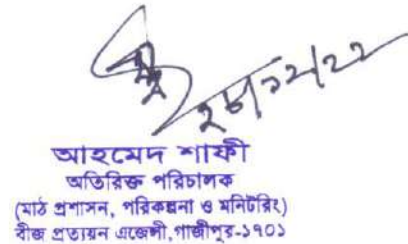 ২৮/১২/২২
আহমেদ শাফী
অতিরিক্ত পরিচালক
(মাঠ প্রশাসন, পরিকল্পনা ও মনিটরিং)
বীজ প্রত্যয়ন এজেন্সী, গাজীপুর-১৭০১